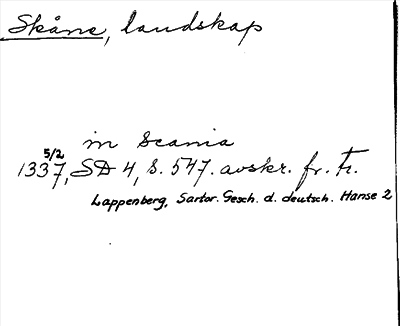 Skåne, landskap
in Scania
5/2
1337, SD 4, S. 547. avskr. fr. tr.
Lappenberg, Sartor. Gesch. d. deutsch. Hanse 2